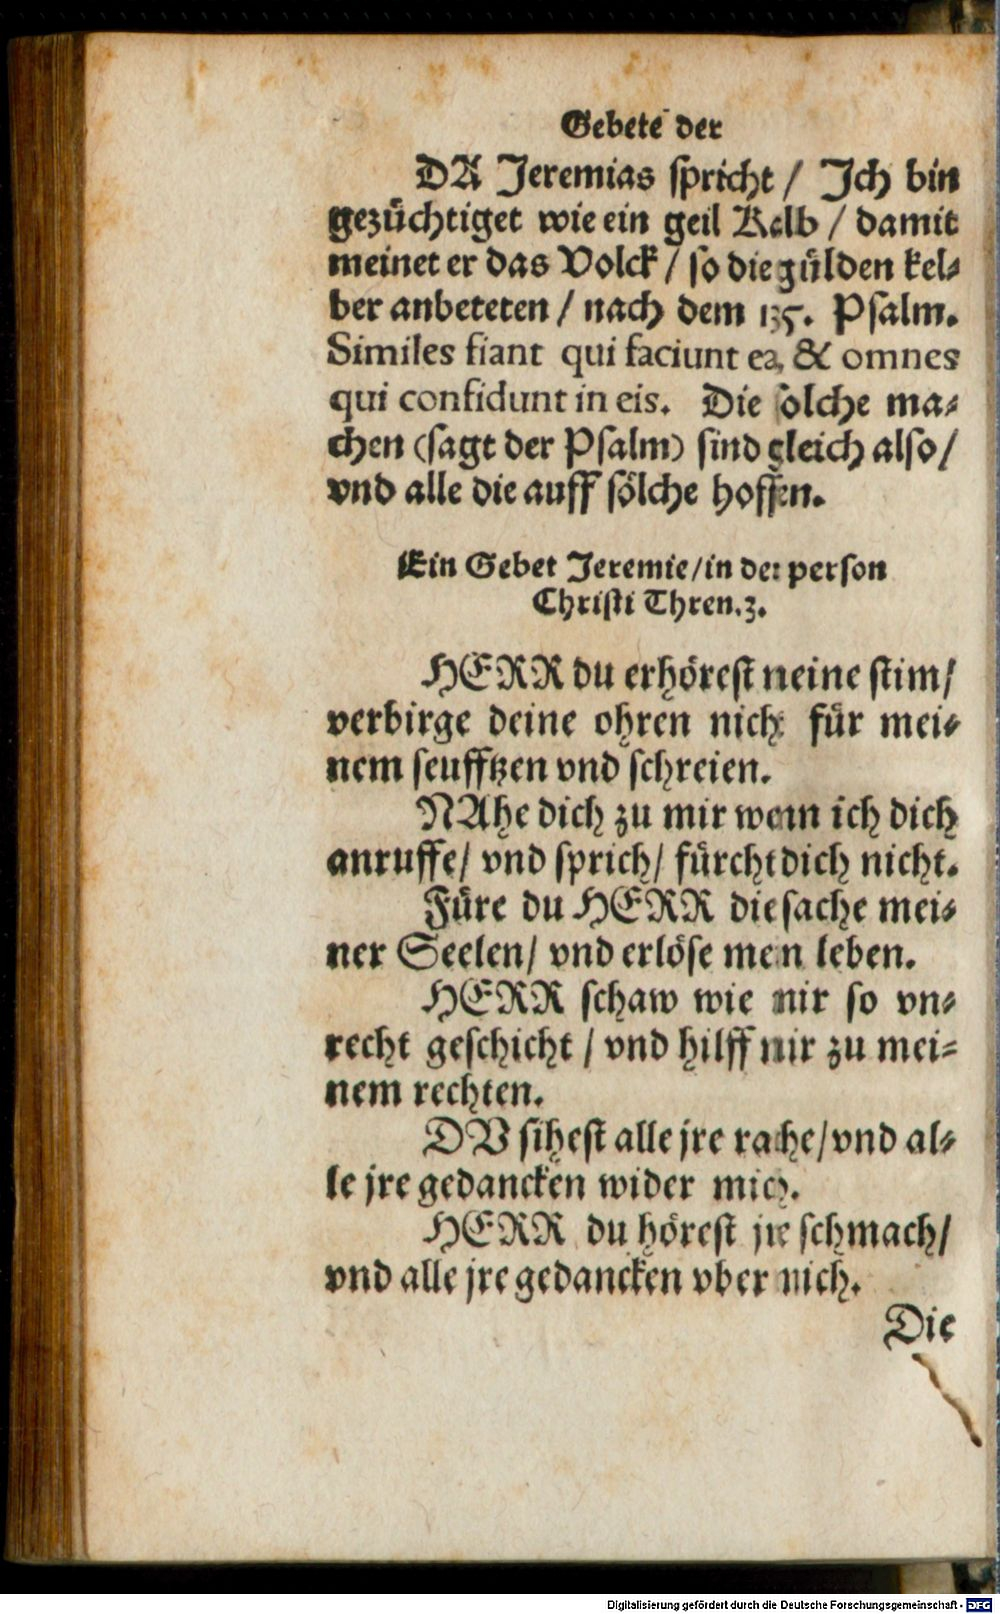 Gebete der
DA Jeremias spricht / Jch bin
gezüchtiget wie ein geil Kalb / damit
meinet er das Volck / so die gülden kel⸗
ber anbeteten / nach dem 135. Psalm.
Similes fiant qui faciunt ea, & omnes
qui confidunt in eis. Die solche ma⸗
chen (sagt der Psalm) sind gleich also /
vnd alle die auff sölche hoffen.
Ein Gebet Jeremie / in der person
Christi Thren. 3.
HERR du erhörest meine stim /
verbirge deine ohren nicht für mei⸗
nem seufftzen vnd schreien.
NAhe dich zu mir wenn ich dich
anruffe / vnd sprich / fürcht dich nicht.
Füre du HERR die sache mei⸗
ner Seelen / vnd erlöse mein leben.
HERR schaw wie mir so vn⸗
recht geschicht / vnd hilff mir zu mei⸗
nem rechten.
DV sihest alle jre rache / vnd al⸗
le jre gedancken wider mich.
HERR du hörest jre schmach /
vnd alle jre gedancken vber mich.
Die
Digitalisierung gefördert durch die Deutsche Forschungsgemeinschaft - DFG